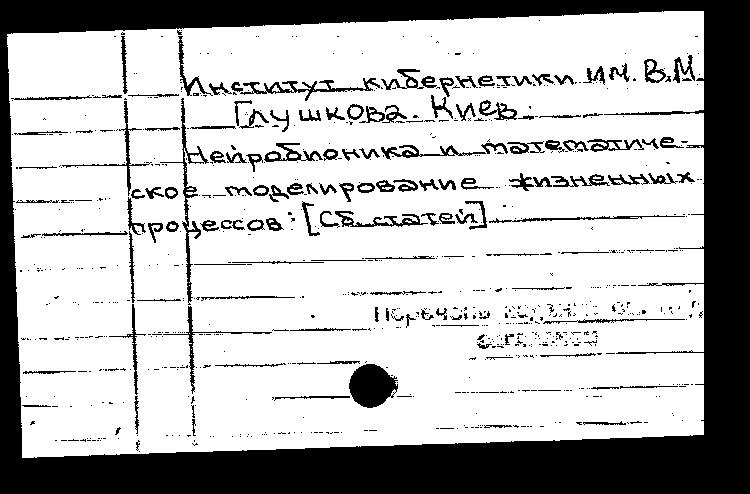 Институт кибернетики им. В.М.
Глушкова. Киев.
Нейробионика и математиче-
ское моделирование жизненных
процессов: [Сб. статей].
Перечень издания см. под